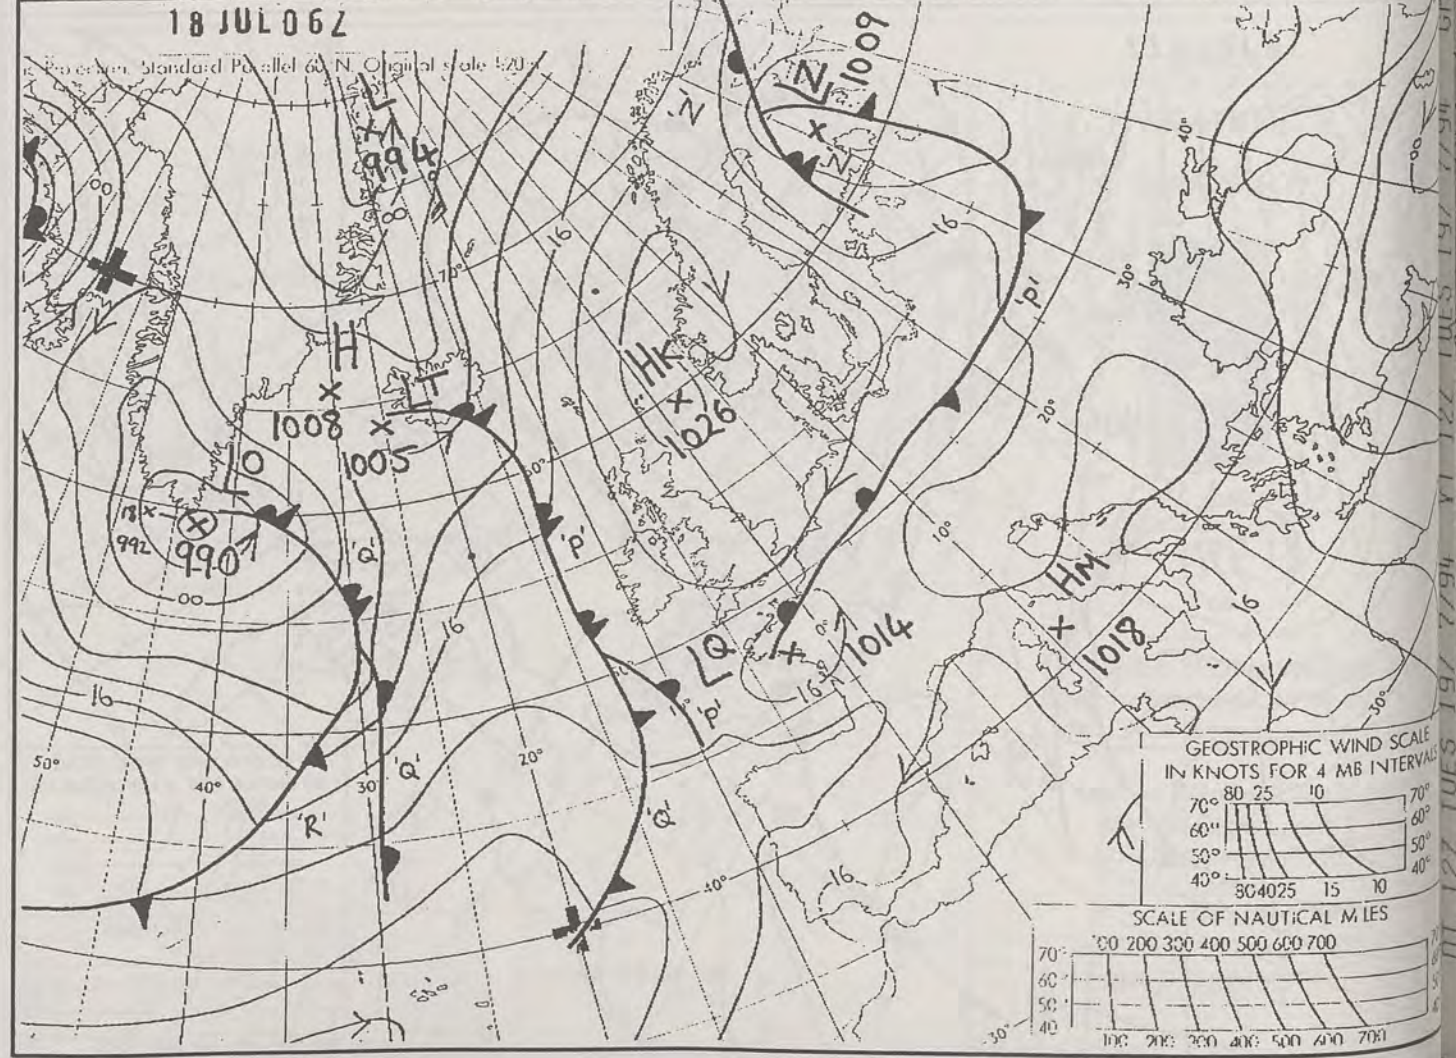 18 JUL 06Z
Projection. Standard Parallel 60 N. Original scale 1:20
L
994
00
00
70°
16
16
N
LN
1009
N
40°
30°
'P'
H
1008
LT
1005
HK
1026
20°
10°
LO
18
992
990
00
'Q'
'P'
16
HM
1018
16
LQ
1014
0°
16
'P'
16
50°
40°
30°
20°
'Q'
'R'
'Q'
40°
16
30°
GEOSTROPHIC WIND SCALE
IN KNOTS FOR 4 MB INTERVALS
80 25 10
70° 70°
60° 60°
50° 50°
40° 40°
80 40 25 15 10
SCALE OF NAUTICAL MILES
100 200 300 400 500 600 700
70°
60
50
40
100 200 300 400 500 600 700
30°